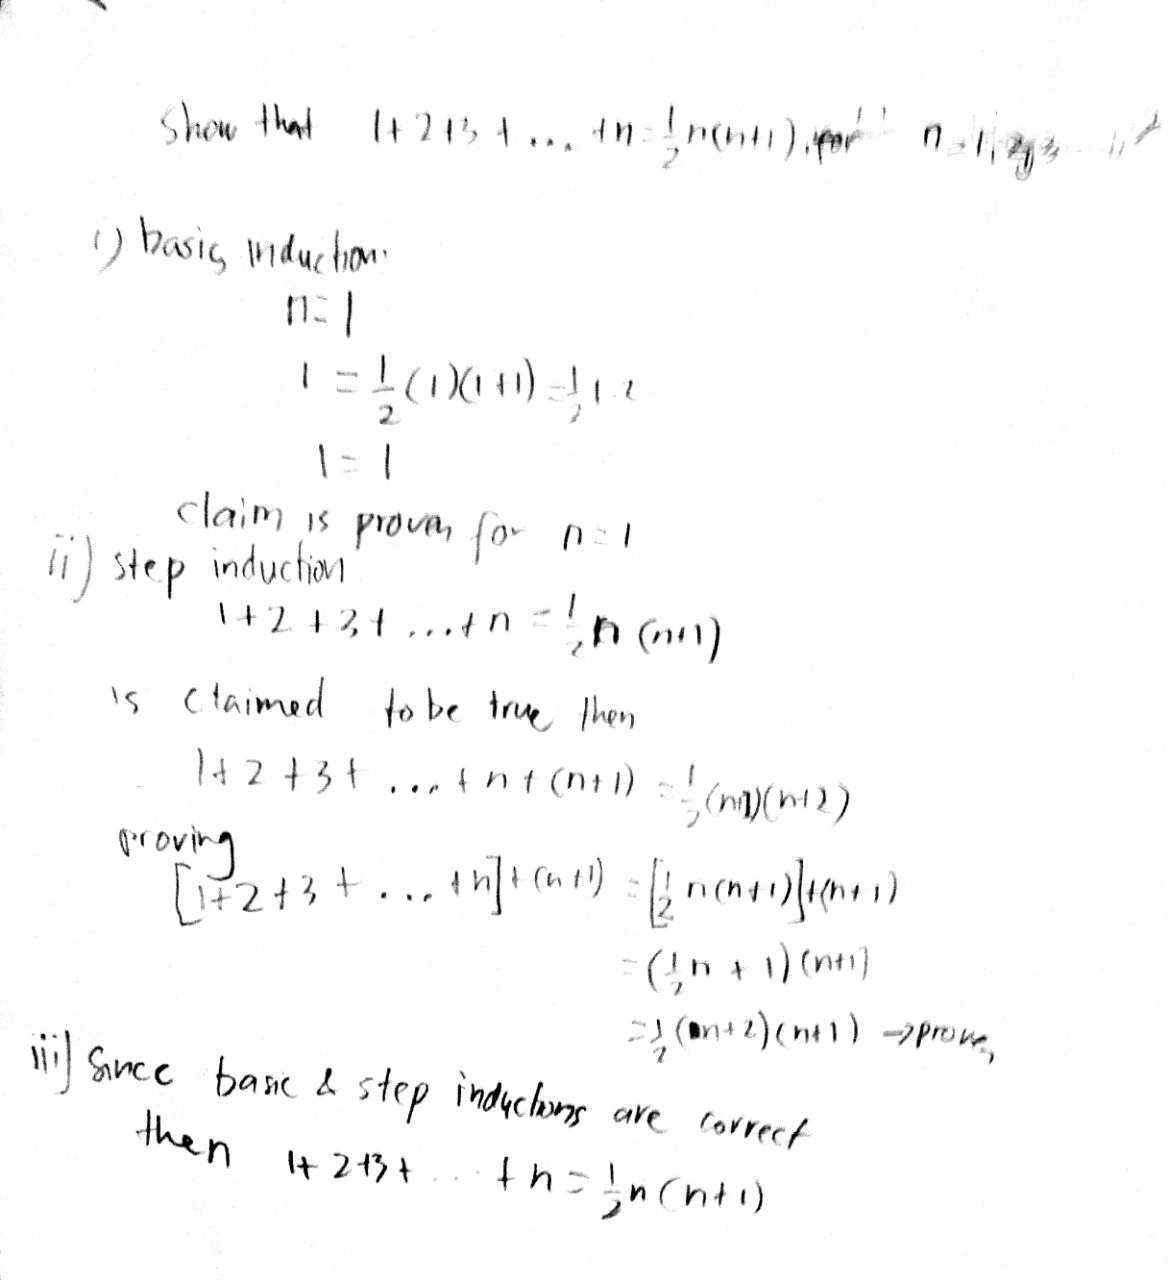 Show that 1+2+3+...+n=½n(n+1), for n=1,2,3
i) basic induction
n=1
1=½(1)(1+1)=½1.2
1=1
claim is proven for n=1
ii) step induction
1+2+3+...+n=½n(n+1)
is claimed to be true then
1+2+3+...+n+(n+1)=½(n+1)(n+2)
proving
[1+2+3+...+n]+(n+1)=[½n(n+1)]+(n+1)
=(½n+1)(n+1)
=½(n+2)(n+1)→proven
iii) Since basic & step inductions are correct
then 1+2+3+...+n=½n(n+1)